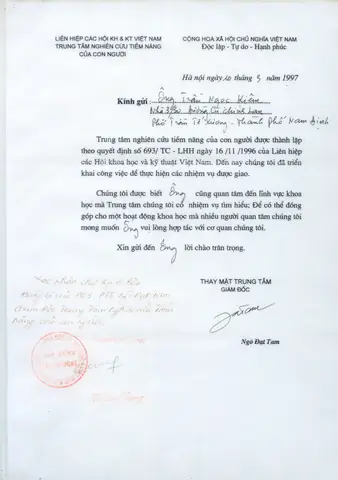 LIÊN HIỆP CÁC HỘI KH & KT VIỆT NAM
TRUNG TÂM NGHIÊN CỨU TIỀM NĂNG
CỦA CON NGƯỜI
CỘNG HOÀ XÃ HỘI CHỦ NGHĨA VIỆT NAM
Độc lập - Tự do - Hạnh phúc
Hà nội ngày 10 tháng 5 năm 1997
Kính gửi : Ông Trần Ngọc Kiệm
Phố Trần Tế Xương - Thành Phố Nam Định
Trung tâm nghiên cứu tiềm năng của con người được thành lập
theo quyết định số 693/ TC - LHH ngày 16 /11 /1996 của Liên hiệp
các Hội khoa học và kỹ thuật Việt Nam. Đến nay chúng tôi đã triển
khai công việc để thực hiện các nhiệm vụ được giao.
Chúng tôi được biết Ông cũng quan tâm đến lĩnh vực khoa
học mà Trung tâm chúng tôi có nhiệm vụ tìm hiểu; Để có thể đóng
góp cho một hoạt động khoa học mà nhiều người quan tâm chúng tôi
mong muốn Ông vui lòng hợp tác với cơ quan chúng tôi.
Xin gửi đến Ông lời chào trân trọng.
THAY MẶT TRUNG TÂM
GIÁM ĐỐC
Ngô Đạt Tam
Xác nhận chữ ký